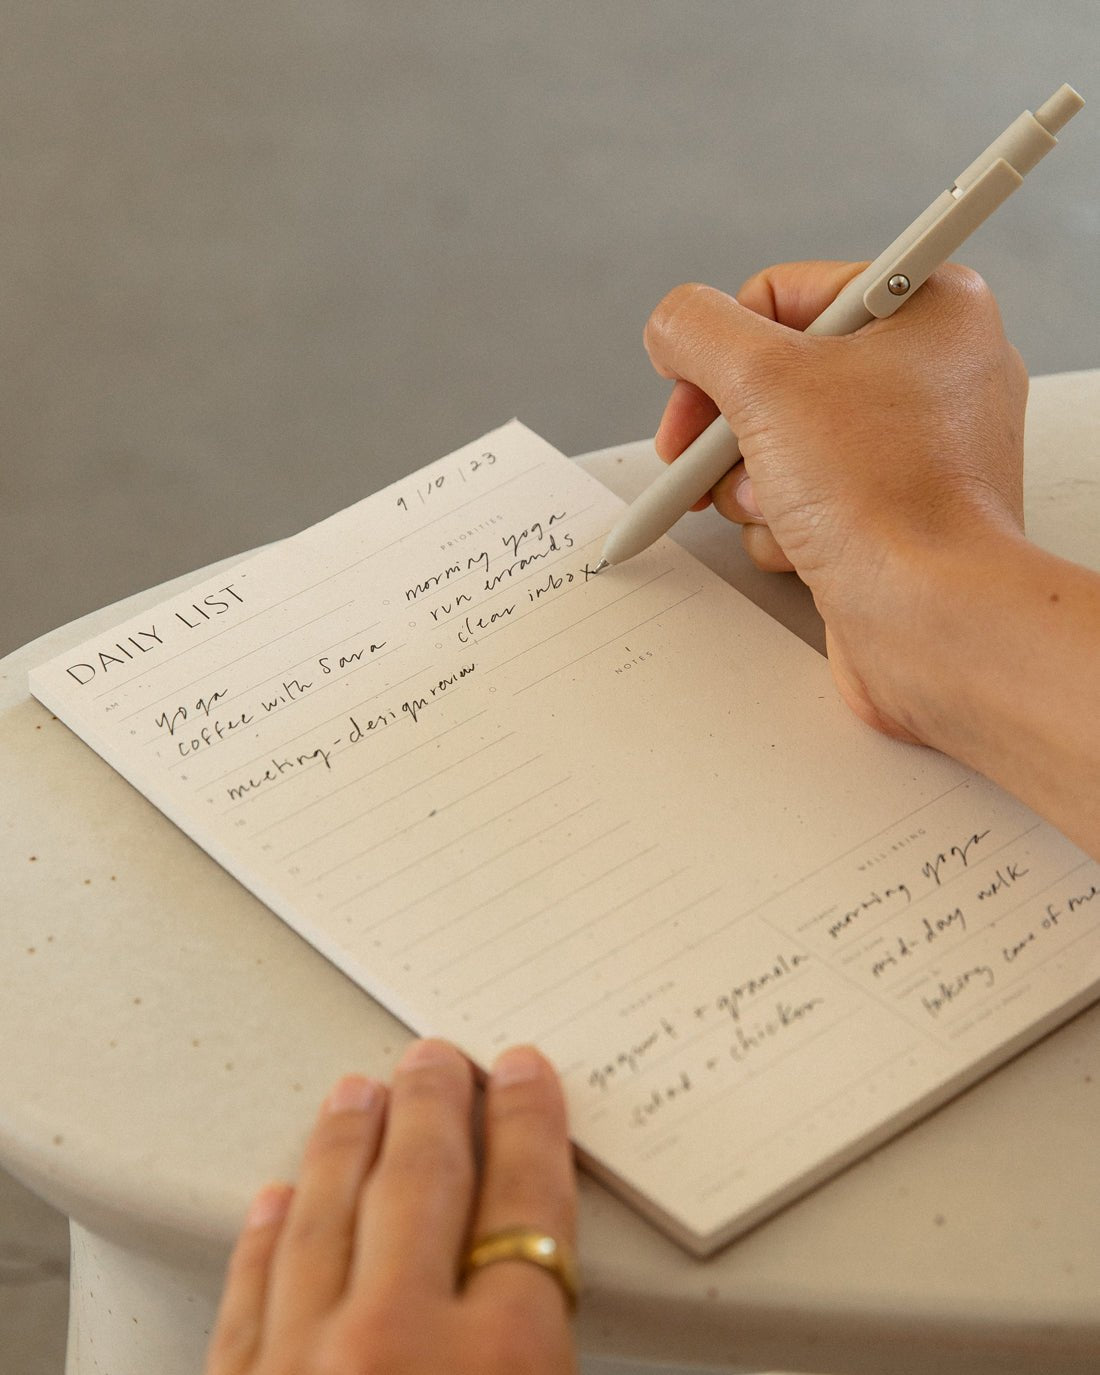 9/10/23
DAILY LIST
PRIORITIES
morning yoga
run errands
clear inbox
AM
6
yoga
7
coffee with Sara
8
9
meeting - design review
10
11
12
NOTES
WELL-BEING
morning yoga
mid-day walk
taking care of me
yogurt + granola
salad + chicken